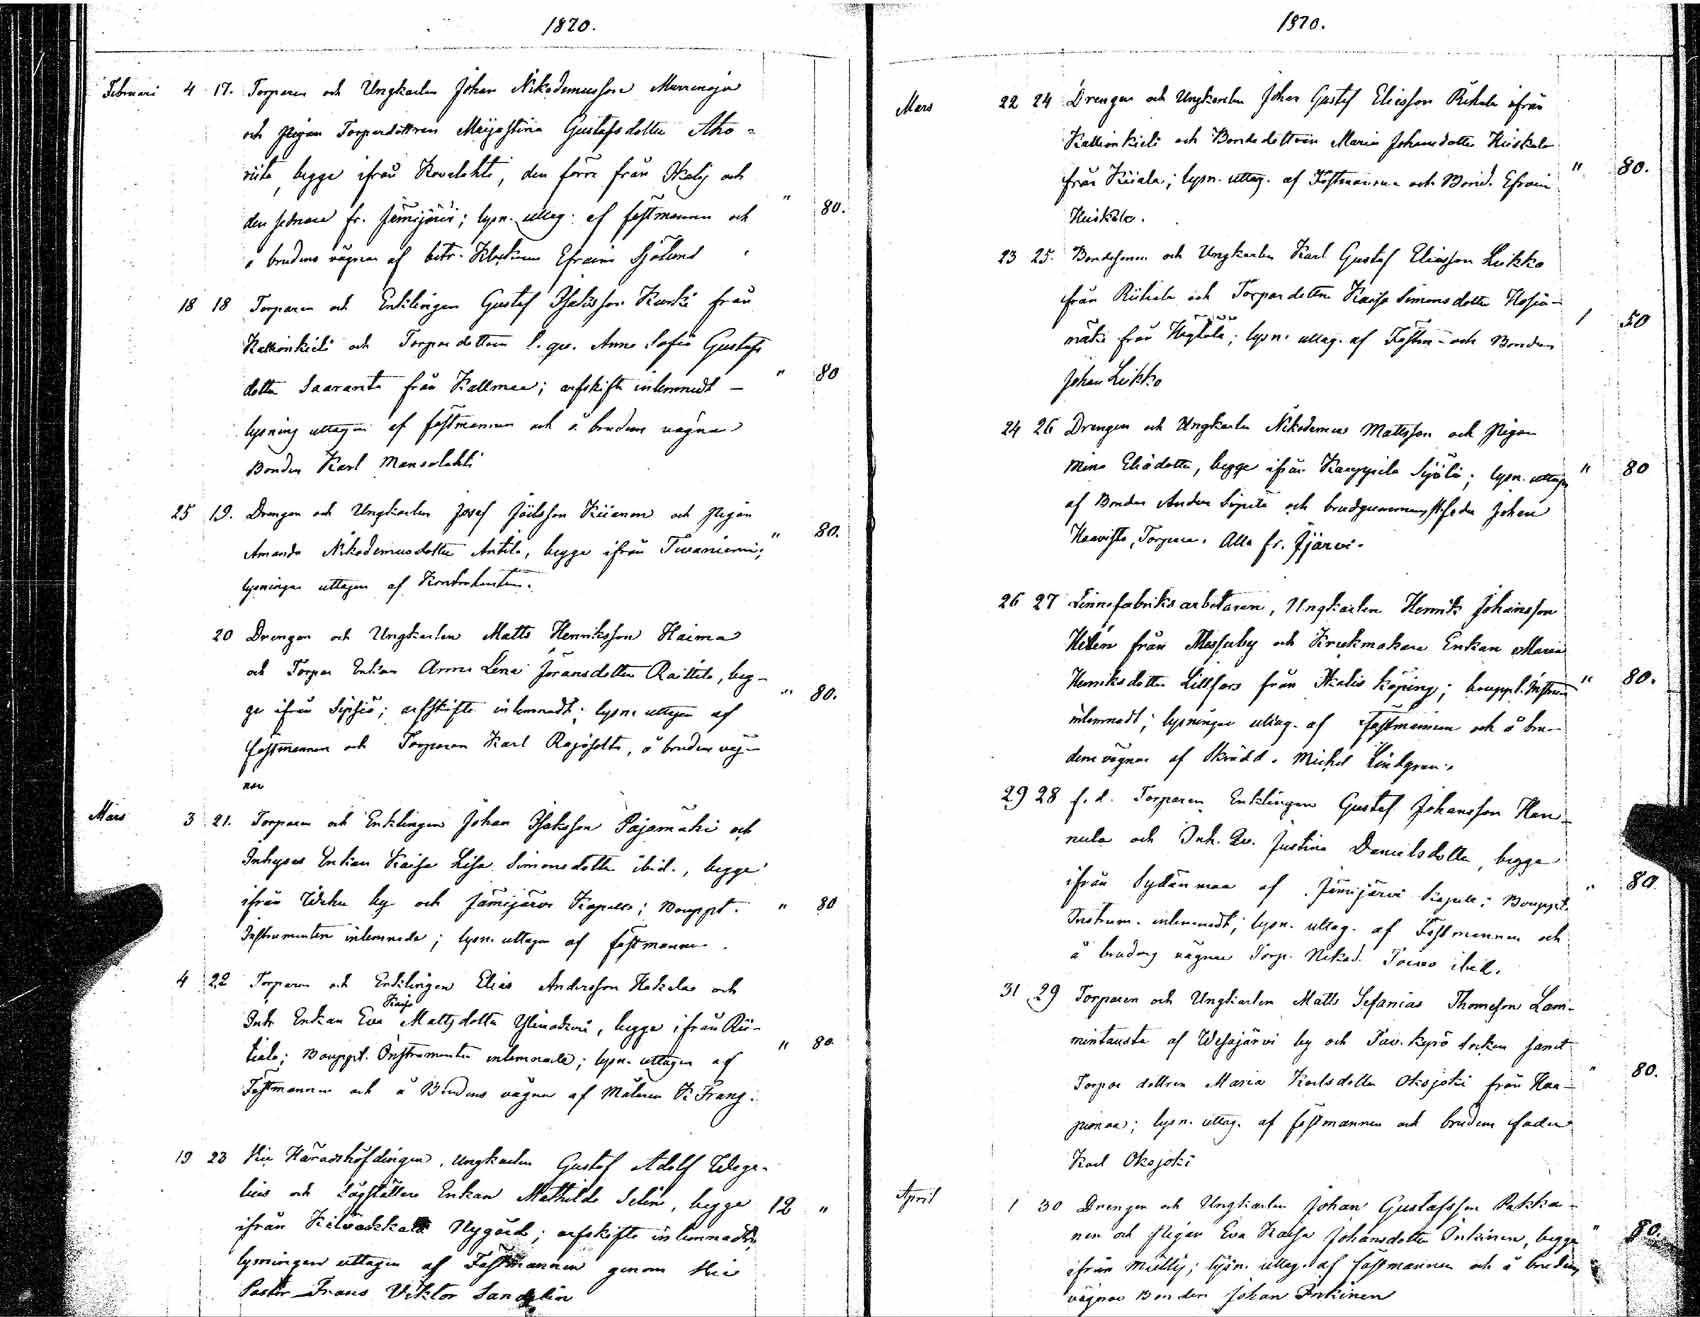 1870.
Februari 4 17. Torparen och Ungkarlen Johan Nikodemusson Murronoja
och Pigan Torparedottren Maijastina Gustafsdotter Aho-
riita, begge ifrån Kovelahti, den förre från Ikalis och
den sednare fr. Jämijärvi; lysn. uttag. af fästmannen och " 80.
å brudens vägnar af bitr. Klockaren Efraim Sjölund
18 18 Torparen och Enklingen Gustaf Isaksson Kurki från
Kallionkieli och Torpardottren Anna Sofia Gustafs
dotter Saaranta från Kallmaa; afskifte inlemnadt – " 80
lysning uttagen af fästmannen och å brudens vägnar
Bonden Karl Mansolahti
25 19. Drengen och Ungkarlen Josef Kiianen och Pigan
Amanda Nikodemusdotter Antila, begge ifrån Tevaniemi; " 80.
lysningen uttagen af Kontrahenten.
20 Drengen och Ungkarlen Matts Henriksson Haima
och Torpar Enkan Anna Lena Göransdotter Raittila, beg-
ge ifrån Sipsiö; afskifte inlemnadt; lysn. uttagen af " 80.
fästmannen och Torparen Karl Rajasilta, å brudens väg-
nar
Mars 3 21. Torparen och Enklingen Johan Isaksson Pajamäki och
Inhyses Enkan Kaisa Lisa Simonsdotter ibid., begge
ifrån by och Jämijärvi Kapell; Bouppt. " 80
Instrumenten inlemnade; lysn. uttagen af fästmannen.
4 22 Torparen och Enklingen Elias Andersson Hakala och
Kaisa
Inh. Enkan Eva Mattsdotter, begge ifrån Rii-
tiala; Bouppt. Instrumenten inlemnade; lysn. uttagen af " 80
Fästmannen och å Brudens vägnar af Målaren K. Frang.
19 23 Vice Häradshöfdingen, Ungkarlen Gustaf Adolf Wege-
lius och Enkan Mathilda Selin, begge 12 "
ifrån Kilvakkala Nygård; afskifte inlemnadt;
lysningen uttagen af Fästmannen genom Vice
Pastor Frans Viktor Sandelin
1870.
Mars 22 24 Drengen och Ungkarlen Johan Gustaf Eliasson Riihala ifrån
Kallionkieli och Bondedottren Maria Johansdotter Heiskala
från Kiiala; lysn. uttag. af Fästmannen och Bond. Efraim " 80.
Heiskala.
23 25. Bondesonen och Ungkarlen Karl Gustaf Eliasson Leikko
från Riihala och Torpardottren Kaisa Simonsdotter Hosia-
mäki från Heittola; lysn. uttag. af Fästm. och Bonden 1 50
Johan Leikko
24 26 Drengen och Ungkarlen Nikodemus Mattsson och Pigan
Mina Eliædotter, begge ifrån Kauppila; lysn. uttagen " 80
af Bonden Anders Sipilä och brudgummens Johan
Haavisto, Torpare. Alla fr. Jjärvi.
26 27 Linnefabriksarbetaren, Ungkarlen Henrik Johansson
Helén från Messuby och Krukmakare Enkan Maria
Henriksdotter Lillfors från Ikalis köping; bouppt. Instrum " 80.
inlemnadt; lysningen uttag. af Fästmannen och å bru-
dens vägnar af Skrädd. Michel Lindgren.
29 28 f. d. Torparen Enklingen Gustaf Johansson Han-
nula och Inh. Qv. Justina Danielsdotter, begge
ifrån Sydänmaa af Jämijärvi Kapell; Bouppt. " 80
Instrum. inlemnadt; lysn. uttag. af Fästmannen och
å brudens vägnar Torp. Nikod. ibid.
31 29 Torparen och Ungkarlen Matts Sefanias Thomasson Lam-
mintausta af Vesajärvi by och Tav. kyrö Socken samt
Torpardottren Maria Karlsdotter Oksjoki från Haa- " 80.
pimaa; lysn. uttag. af fästmannen och brudens fader
Karl Oksjoki
April 1 30 Drengen och Ungkarlen Johan Gustafsson Pakka-
nen och Pigan Eva Kaisa Johansdotter Inkinen, begge " 80.
ifrån; lysn. uttag. af fästmannen och å brudens
vägnar Bonden Johan Inkinen